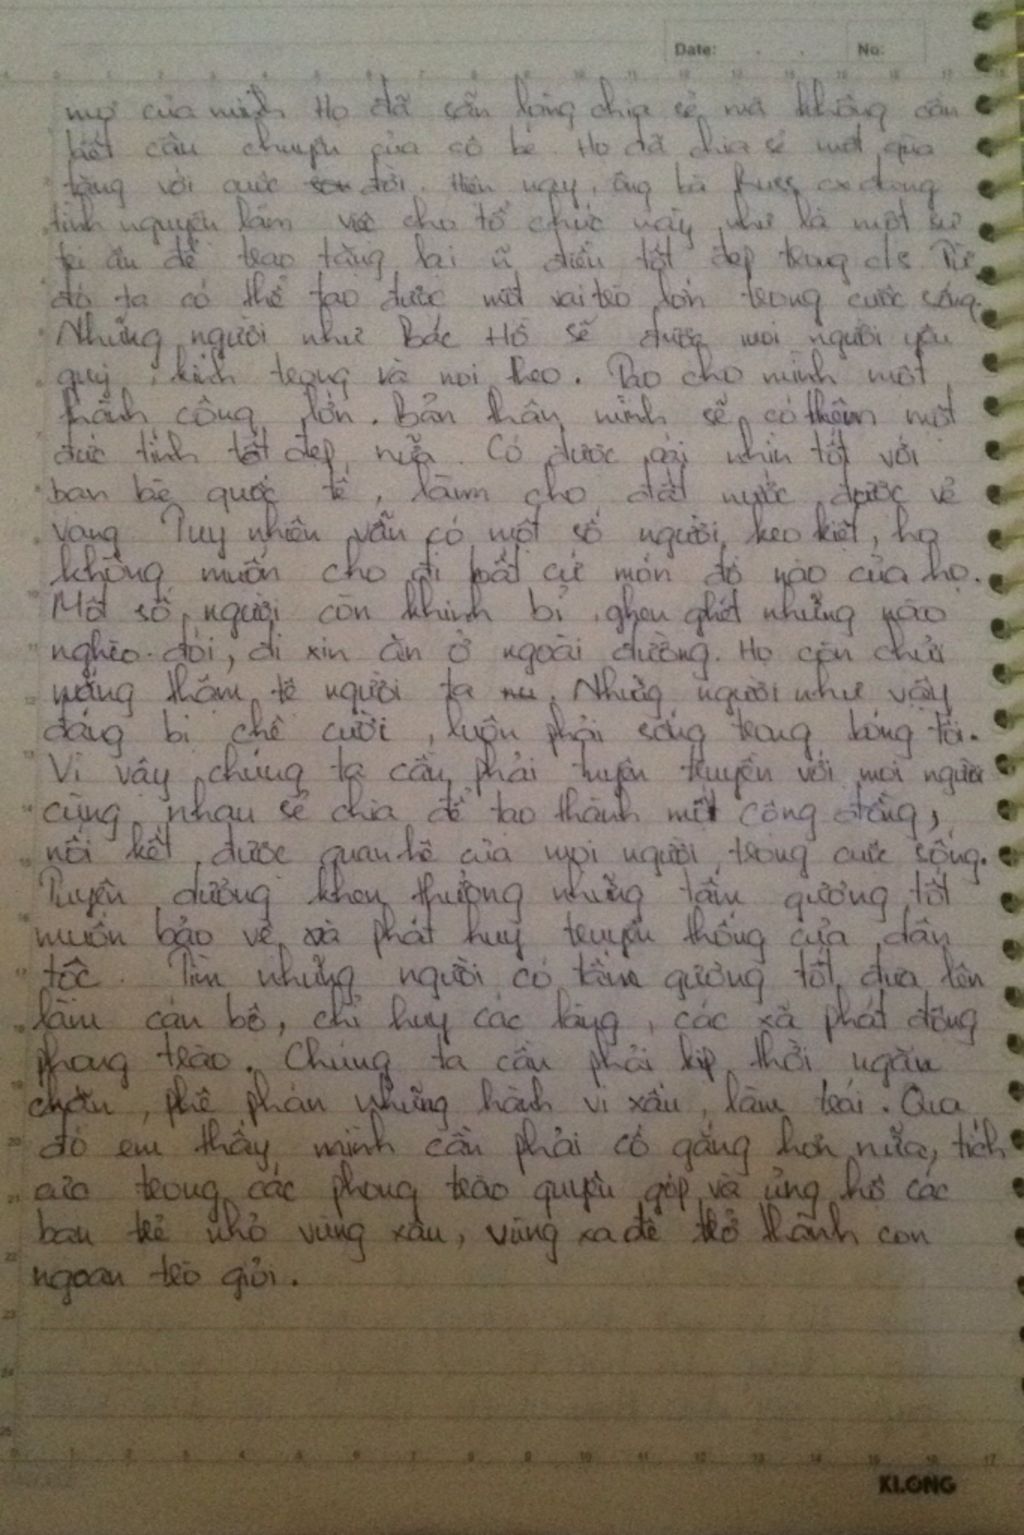 Date: . . No:
mơ của mình Họ đã sẵn lòng chia sẻ mà không cần
biết câu chuyện của cô bé. Họ đã chia sẻ một qùa
tặng với cuộc đời. Hiện nay, ông bà Russ cx đang
tình nguyện làm việc cho tổ chức này như là một sự
tri ân để trao tặng lại ~ điều tốt đẹp trong c/s. Từ
đó ta có thể tạo được một vai trò lớn trong cuộc sống.
Những người như Bác Hồ sẽ được mọi người yêu
quý, kính trọng và noi theo. Tạo cho mình một
thành công lớn. Bản thân mình sẽ có thêm một
đức tính tốt đẹp nữa. Có được cái nhìn tốt với
bạn bè quốc tế, làm cho đất nước được vẻ
vang Tuy nhiên vẫn có một số người keo kiệt, họ
không muốn cho đi bất cứ món đồ nào của họ.
Một số người còn khinh bỉ, ghen ghét những
nghèo đói, đi xin ăn ở ngoài đường. Họ còn chửi
mắng thậm tệ người ta. Những người như vậy
đáng bị chê cười, luôn phải sống trong bóng tối.
Vì vậy chúng ta cần phải tuyên truyền với mọi người
cùng nhau sẻ chia để tạo thành một cộng đồng,
nối kết được quan hệ của mọi người trong cuộc sống.
Tuyên dương khen thưởng những tấm gương tốt
muốn bảo vệ và phát huy truyền thống của dân
tộc. Tìm những người có tấm gương tốt đưa lên
làm cán bộ, chỉ huy các làng, các xã phát động
phong trào. Chúng ta cần phải kịp thời ngăn
chặn, phê phán những hành vi xấu, làm trái. Qua
đó em thấy mình cần phải cố gắng hơn nữa, tích
cực trong các phong trào quyên góp và ủng hộ các
bạn trẻ nhỏ vùng xâu, vùng xa để trở thành con
ngoan trò giỏi.
KLONG